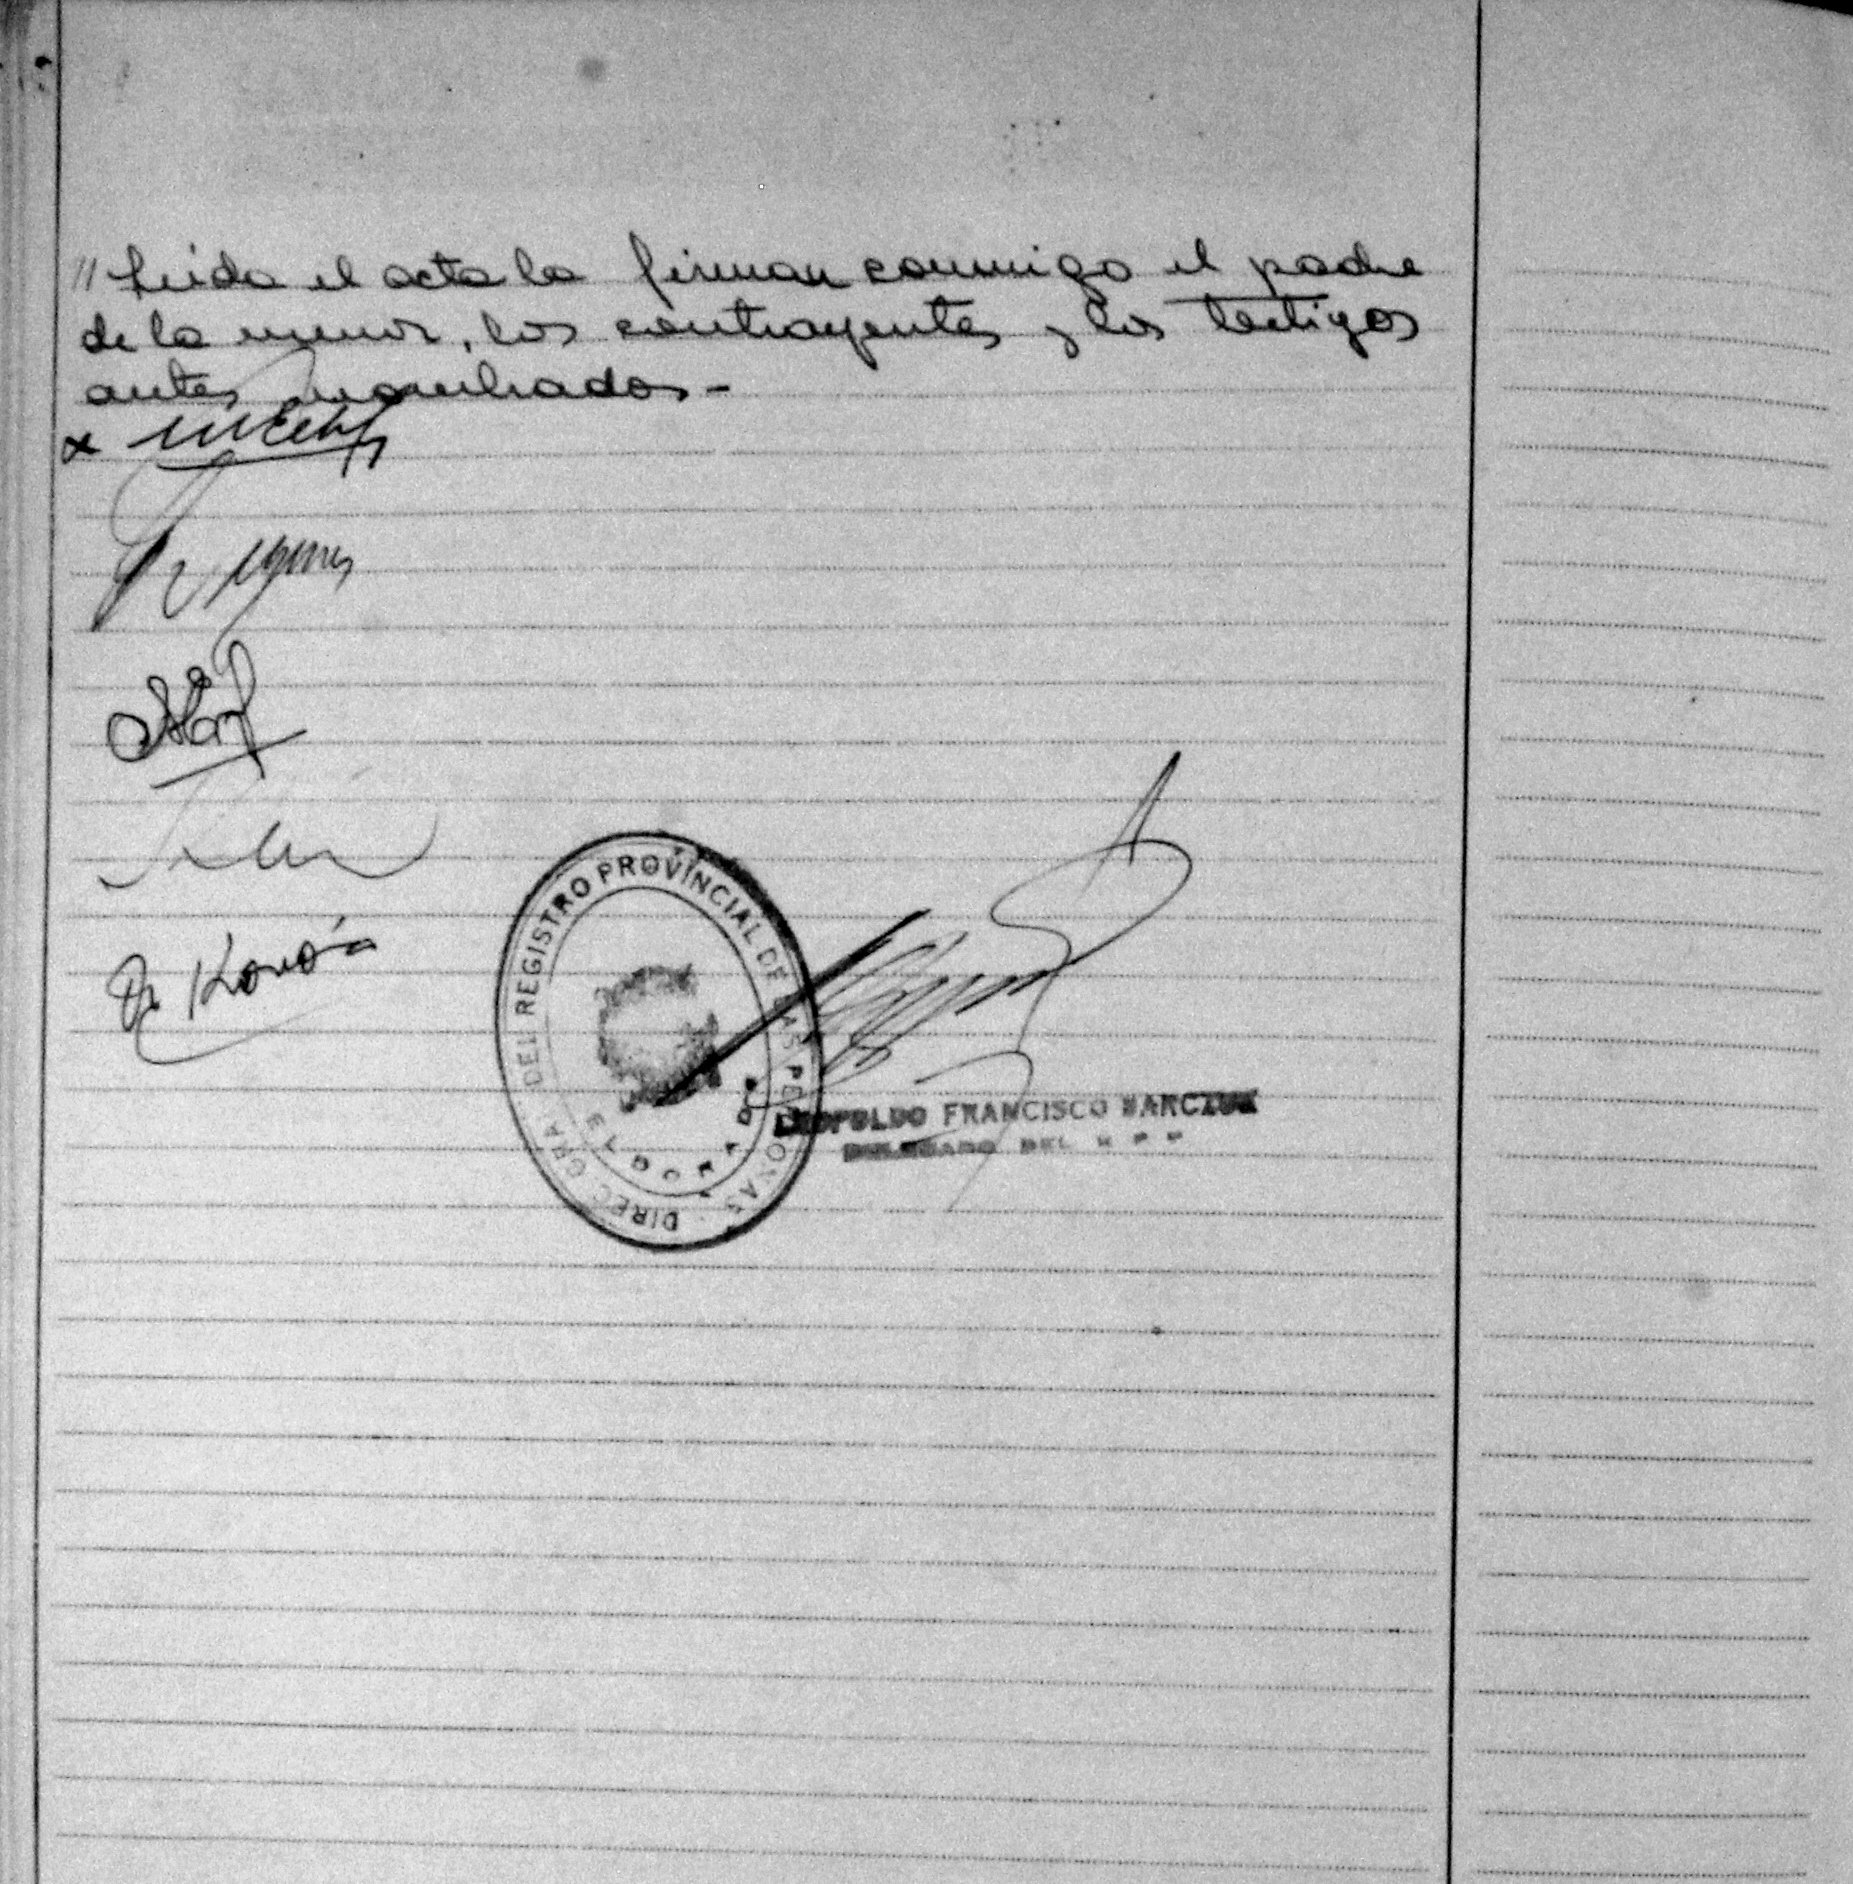 // Leida el acta la firman conmigo el padre
de la menor, los contrayentes y los testigos
antes nombrados -
x
DIREC. GRAL. DEL REGISTRO PROVINCIAL DE LAS PERSONAS
ELDORADO
LEOPOLDO FRANCISCO
DELEGADO DEL R P P